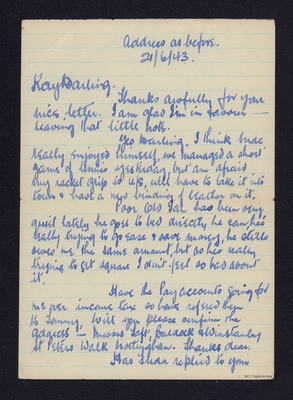 Address as before.
21/6/43.
Kay Darling,
Thanks awfully for your
nice letter. I am glad I'm in favour
leaving that little note.
Yes Darling, I think Mac
really enjoyed himself, we managed a short
game of tennis yesterday but am afraid
my racket grip is u/s, will have to take it into
town & have a new binding of leather on it.
Poor Old Jar has been very
quiet lately he goes to bed directly he can, he's
really trying to go ease & save money, he still
owes me the same amount, but as he's really
trying to get square I don't feel so bad about
it.
Have the Pay accounts going for
me over income tax so have referred them
to Tommy, will you please confirm the
Address — Messrs Buldock & Winstanley
St Peters Walk Nottingham. Thanks dear.
Has replied to your
IBCC Digital Archive